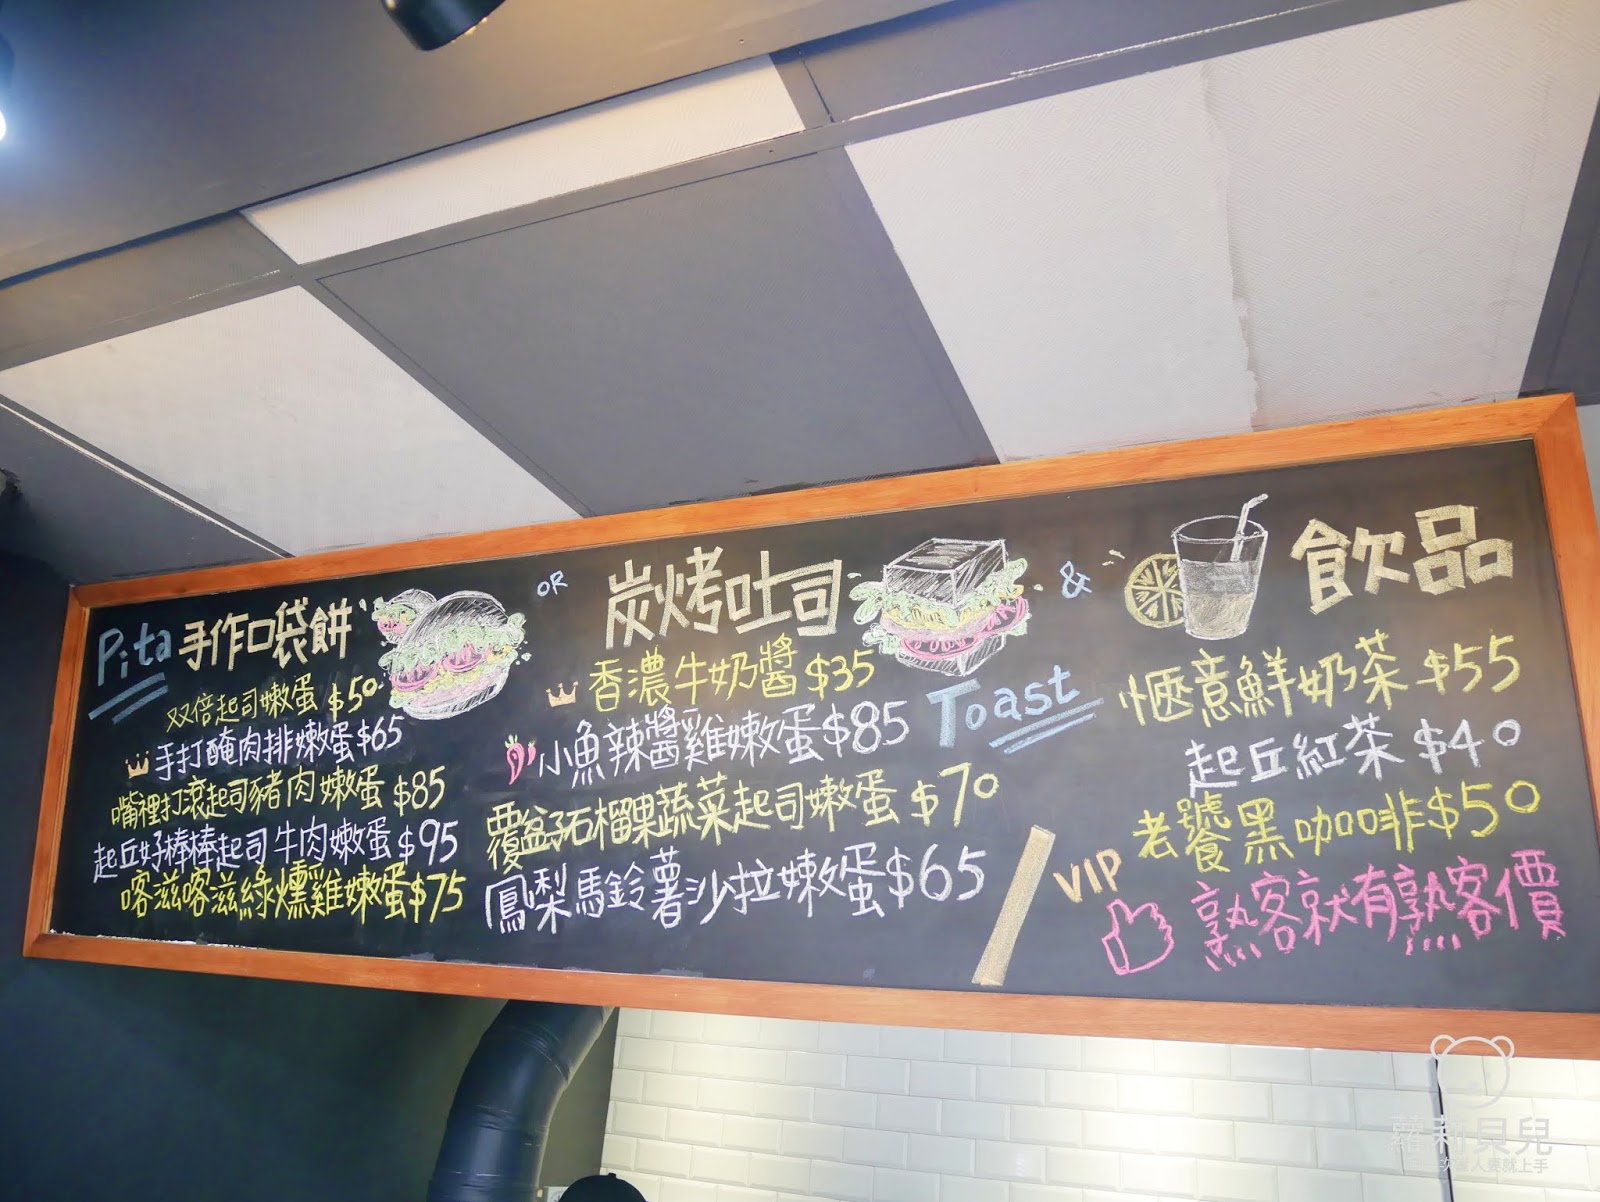 Pita 手作口袋餅
双倍起司嫩蛋 $50
手打醃肉排嫩蛋 $65
嘴裡打滾起司豬肉嫩蛋 $85
起丘好棒棒起司牛肉嫩蛋 $95
喀滋喀滋綠燻雞嫩蛋 $75
OR
炭烤吐司
香濃牛奶醬 $35
小魚辣醬雞嫩蛋 $85
覆盆子石榴果蔬菜起司嫩蛋 $70
鳳梨馬鈴薯沙拉嫩蛋 $65
Toast
&
飲品
愜意鮮奶茶 $55
起丘紅茶 $40
老饕黑咖啡 $50
VIP
熟客就有熟客價
蘿莉貝兒